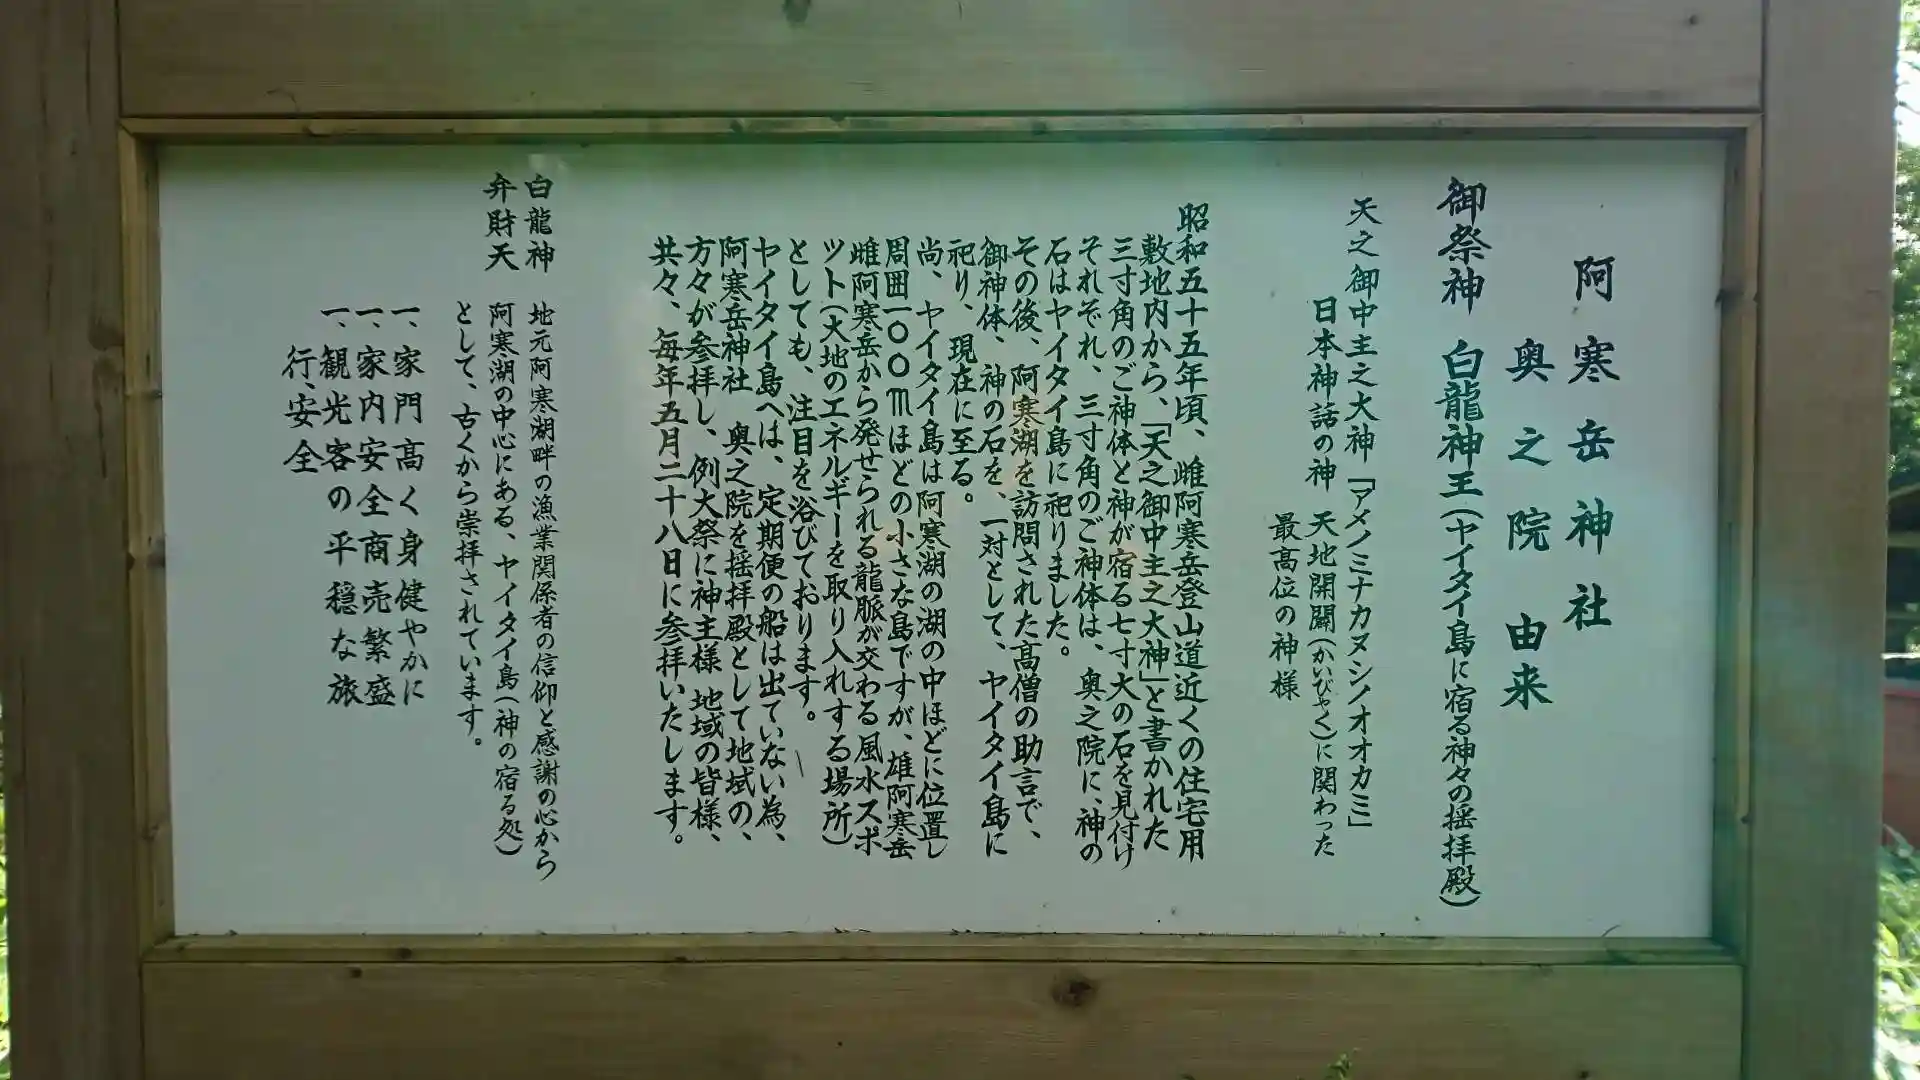 阿寒岳神社
奥之院　由来
御祭神　白龍神王(ヤイタイ島に宿る神々の揺拝殿)
天之御中主之大神「アメノミナカヌシノオオカミ」
日本神話の神　天地開闢(かいびゃく)に関わった
最高位の神様
昭和五十五年頃、雌阿寒岳登山道近くの住宅用
敷地内から、「天之御中主之大神」と書かれた
三寸角のご神体と神が宿る七寸大の石を見付け
それぞれ、三寸角のご神体は、奥之院に、神の
石はヤイタイ島に祀りました。
その後、阿寒湖を訪問された高僧の助言で、
御神体、神の石を、一対として、ヤイタイ島に
祀り、現在に至る。
尚、ヤイタイ島は阿寒湖の湖の中ほどに位置し
周囲一〇〇mほどの小さな島ですが、雄阿寒岳
雌阿寒岳から発せられる龍脈が交わる風水スポ
ット(大地のエネルギーを取り入れする場所)
としても、注目を浴びております。
ヤイタイ島へは、定期便の船は出ていない為、
阿寒岳神社　奥之院を揺拝殿として地域の、
方々が参拝し、例大祭に神主様　地域の皆様、
共々、毎年五月二十八日に参拝いたします。
白龍神
弁財天
地元阿寒湖畔の漁業関係者の信仰と感謝の心から
阿寒湖の中心にある、ヤイタイ島(神の宿る処)
として、古くから崇拝されています。
一、家門高く身健やかに
一、家内安全商売繁盛
一、観光客の平穏な旅
行、安全